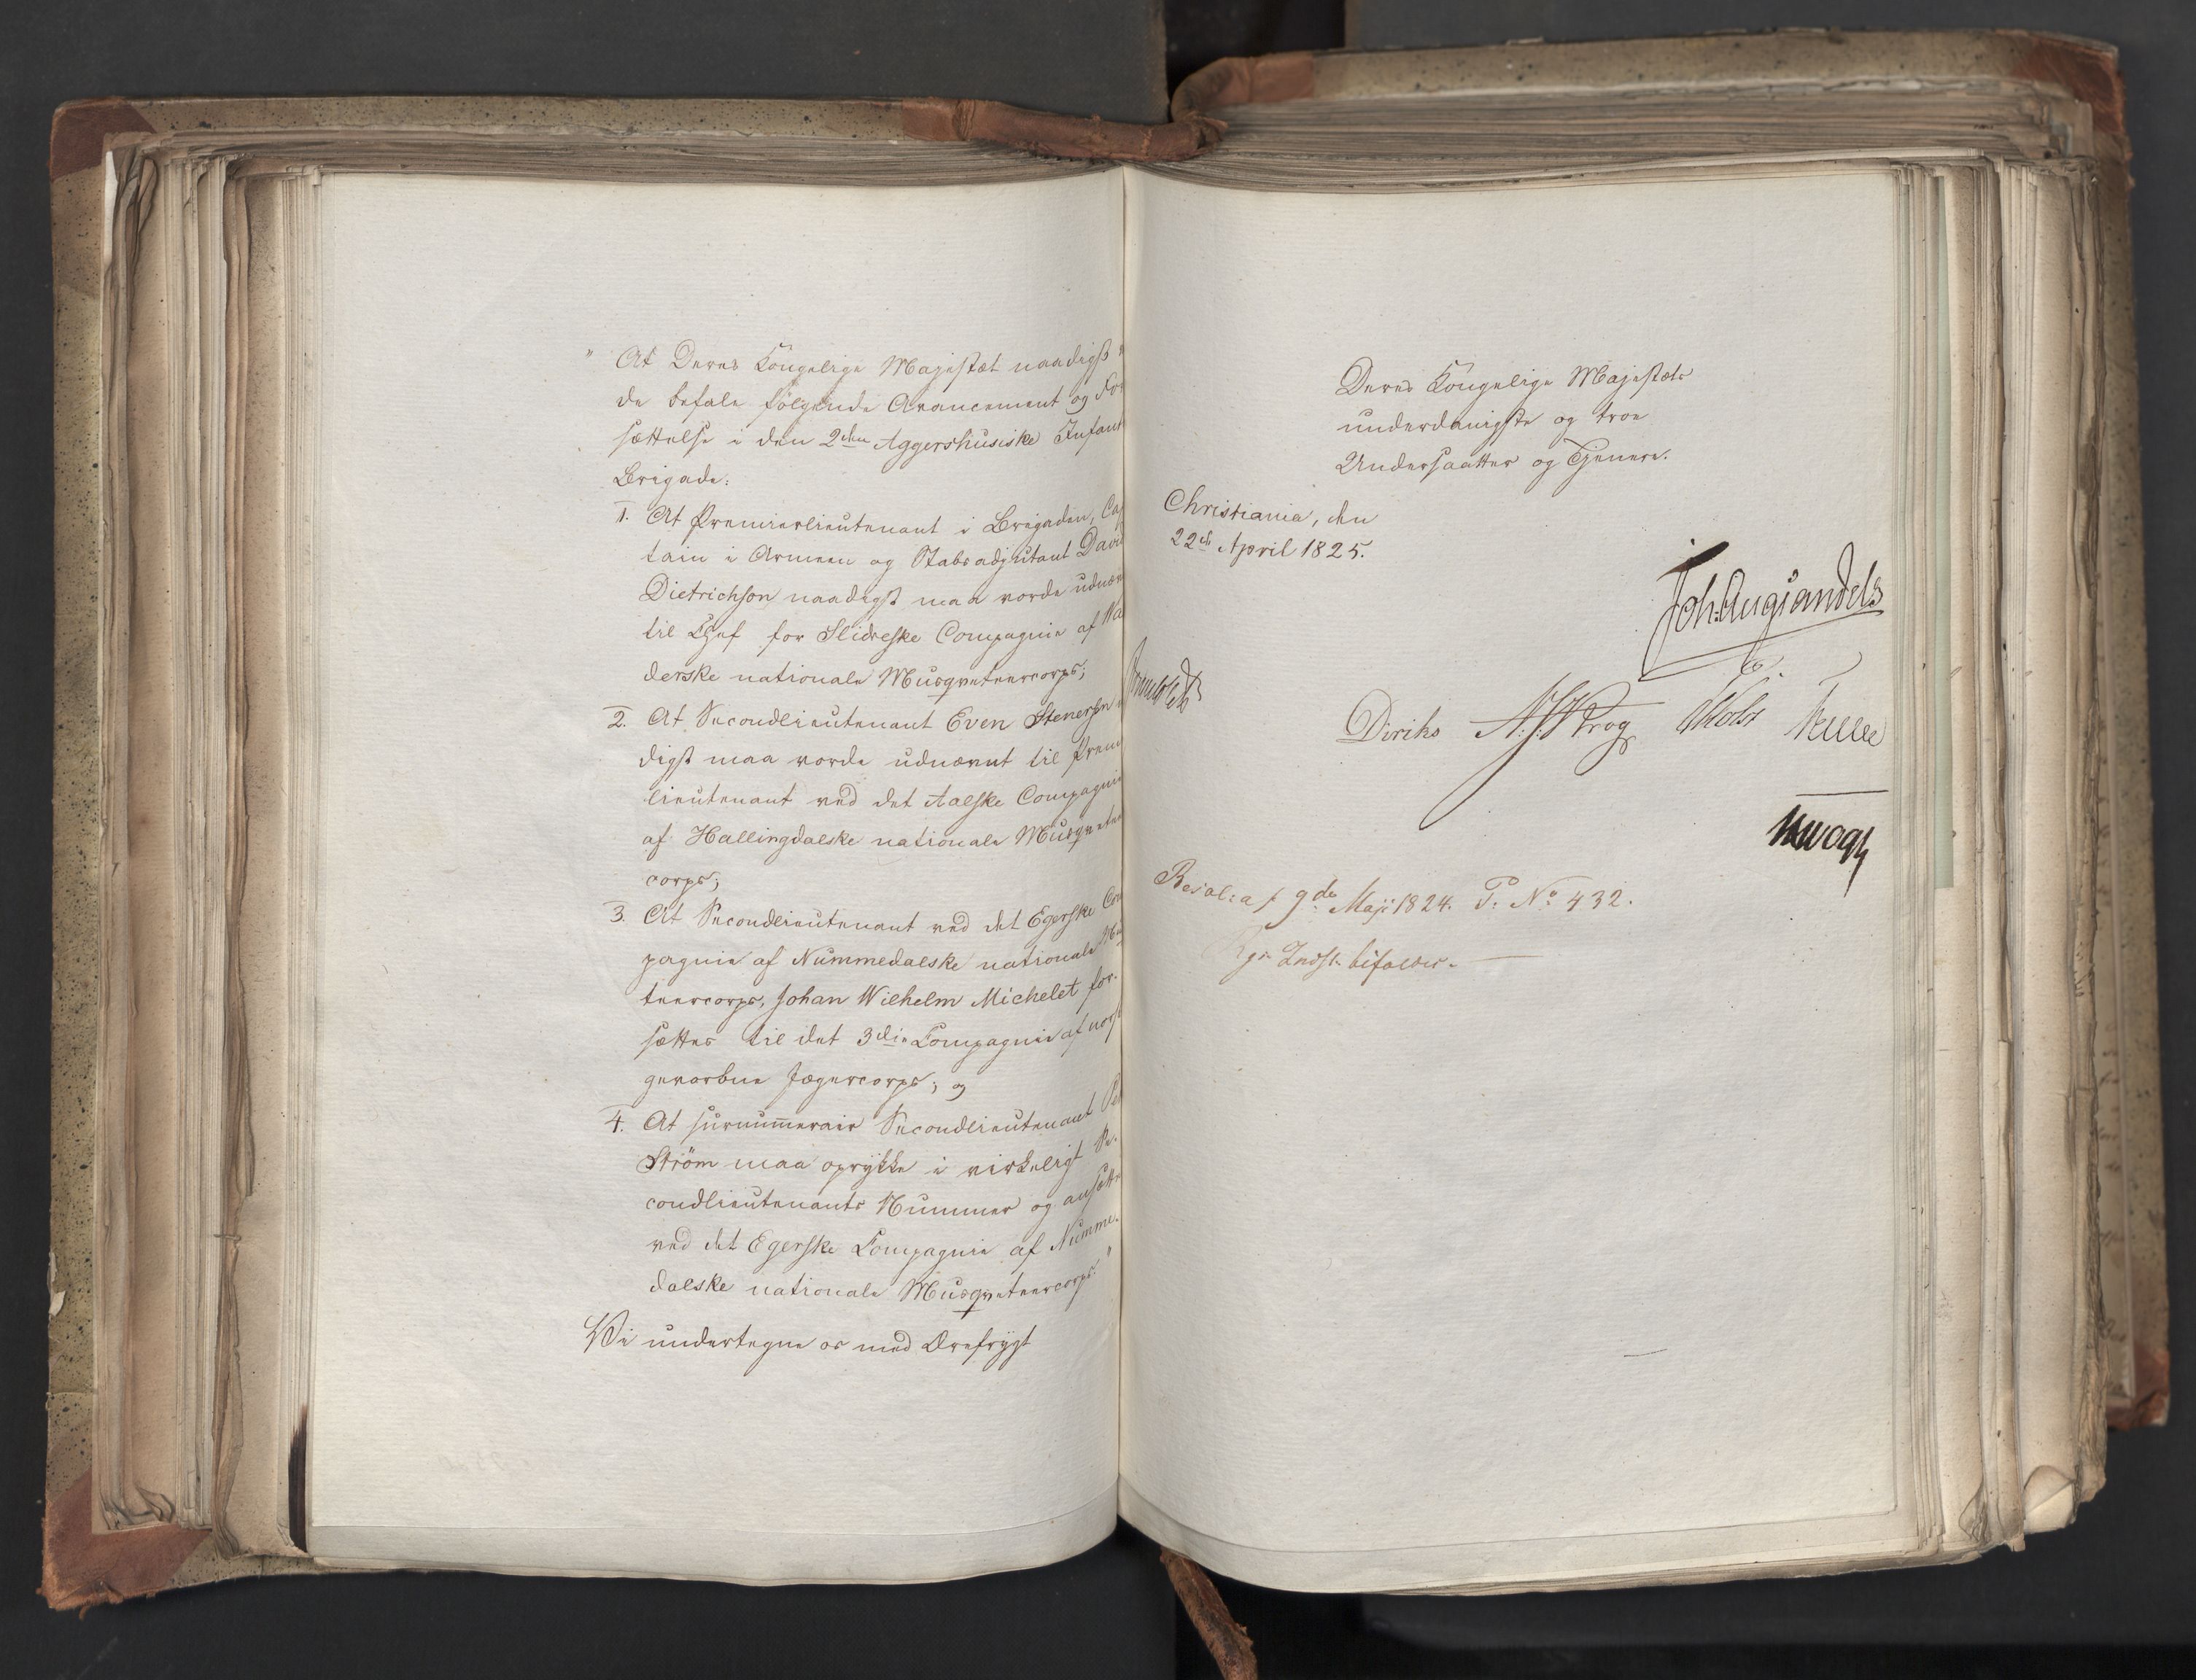 " At Deres Kongelige Majestæt naadigst
de befale følgende Avancement og For
sættelse i den 2den Aggershusiske Infant
Brigade:
1. At Premierlieutenant i Brigaden, Cap
tain i Armeen og Stabsadjutant David
Dietrichson naadigst maa vorde udnævn
til Chef for Slidreske Compagnie af Val
derske nationale Musqveteercorps;
2. At Secondlieutenant Even Stenersen
digst maa vorde udnævnt til Prem
lieutenant ved det Aalske Compagnie
af Hallingdalske nationale Musqvetee
corps;
3. At Secondlieutenant ved det Egerske Com
pagnie af Nummedalske nationale Mus
teercorps, Johan Wilhelm Michelet for-
sættes til det 3die Compagnie af norsk
gevorbne Jægercorps; og
4. At surnummerair Secondlieutenant Pet
Strøm maa oprykke i virkeligt Se-
condlieutenants Nummer og ansætte
ved det Egerske Compagnie af Numme-
dalske nationale Musqveteercorps."
Vi undertegne os med Ærefrygt
Deres Kongelige Majestæts
underdanigste og troe
Undersaatter og Tjenere.
Christiania, den
22de April 1825.
Joh: Aug: Sandels
Diriks N. J. Krog Motzfeldt
JHVogt
Resol: af 9de Maji 1824. P: No 432.
Rgs Indst. bifaldes.